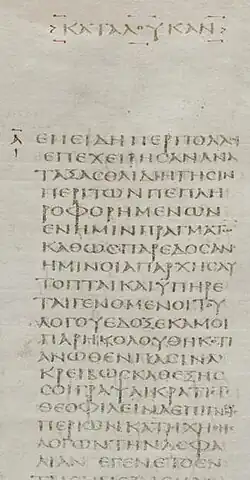 ΚΑΤΑ ΛΟΥΚΑΝ
Α ΕΠΕΙΔΗΠΕΡ ΠΟΛΛΟΙ
ΕΠΕΧΕΙΡΗΣΑΝ ΑΝΑ
ΤΑΞΑΣΘΑΙ ΔΙΗΓΗΣΙΝ
ΠΕΡΙ ΤΩΝ ΠΕΠΛΗ
ΡΟΦΟΡΗΜΕΝΩΝ
ΕΝ ΗΜΙΝ ΠΡΑΓΜΑΤ
ΚΑΘΩΣ ΠΑΡΕΔΟΣΑΝ
ΗΜΙΝ ΟΙ ΑΠ ΑΡΧΗΣ ΑΥ
ΤΟΠΤΑΙ ΚΑΙ ΥΠΗΡΕ
ΤΑΙ ΓΕΝΟΜΕΝΟΙ ΤΟΥ
ΛΟΓΟΥ ΕΔΟΞΕ ΚΑΜΟΙ
ΠΑΡΗΚΟΛΟΥΘΗΚΟΤΙ
ΑΝΩΘΕΝ ΠΑΣΙΝ Α
ΚΡΕΙΒΩΣ ΚΑΘΕΞΗΣ
ΣΟΙ ΓΡΑΨΑΙ ΚΡΑΤΙΣΤΕ
ΘΕΟΦΙΛΕ ΙΝΑ ΕΠΙΓΝΩΣ
ΠΕΡΙ ΩΝ ΚΑΤΗΧΗΘΗΣ
ΛΟΓΩΝ ΤΗΝ ΑΣΦΑ
ΛΕΙΑΝ ΕΓΕΝΕΤΟ ΕΝ